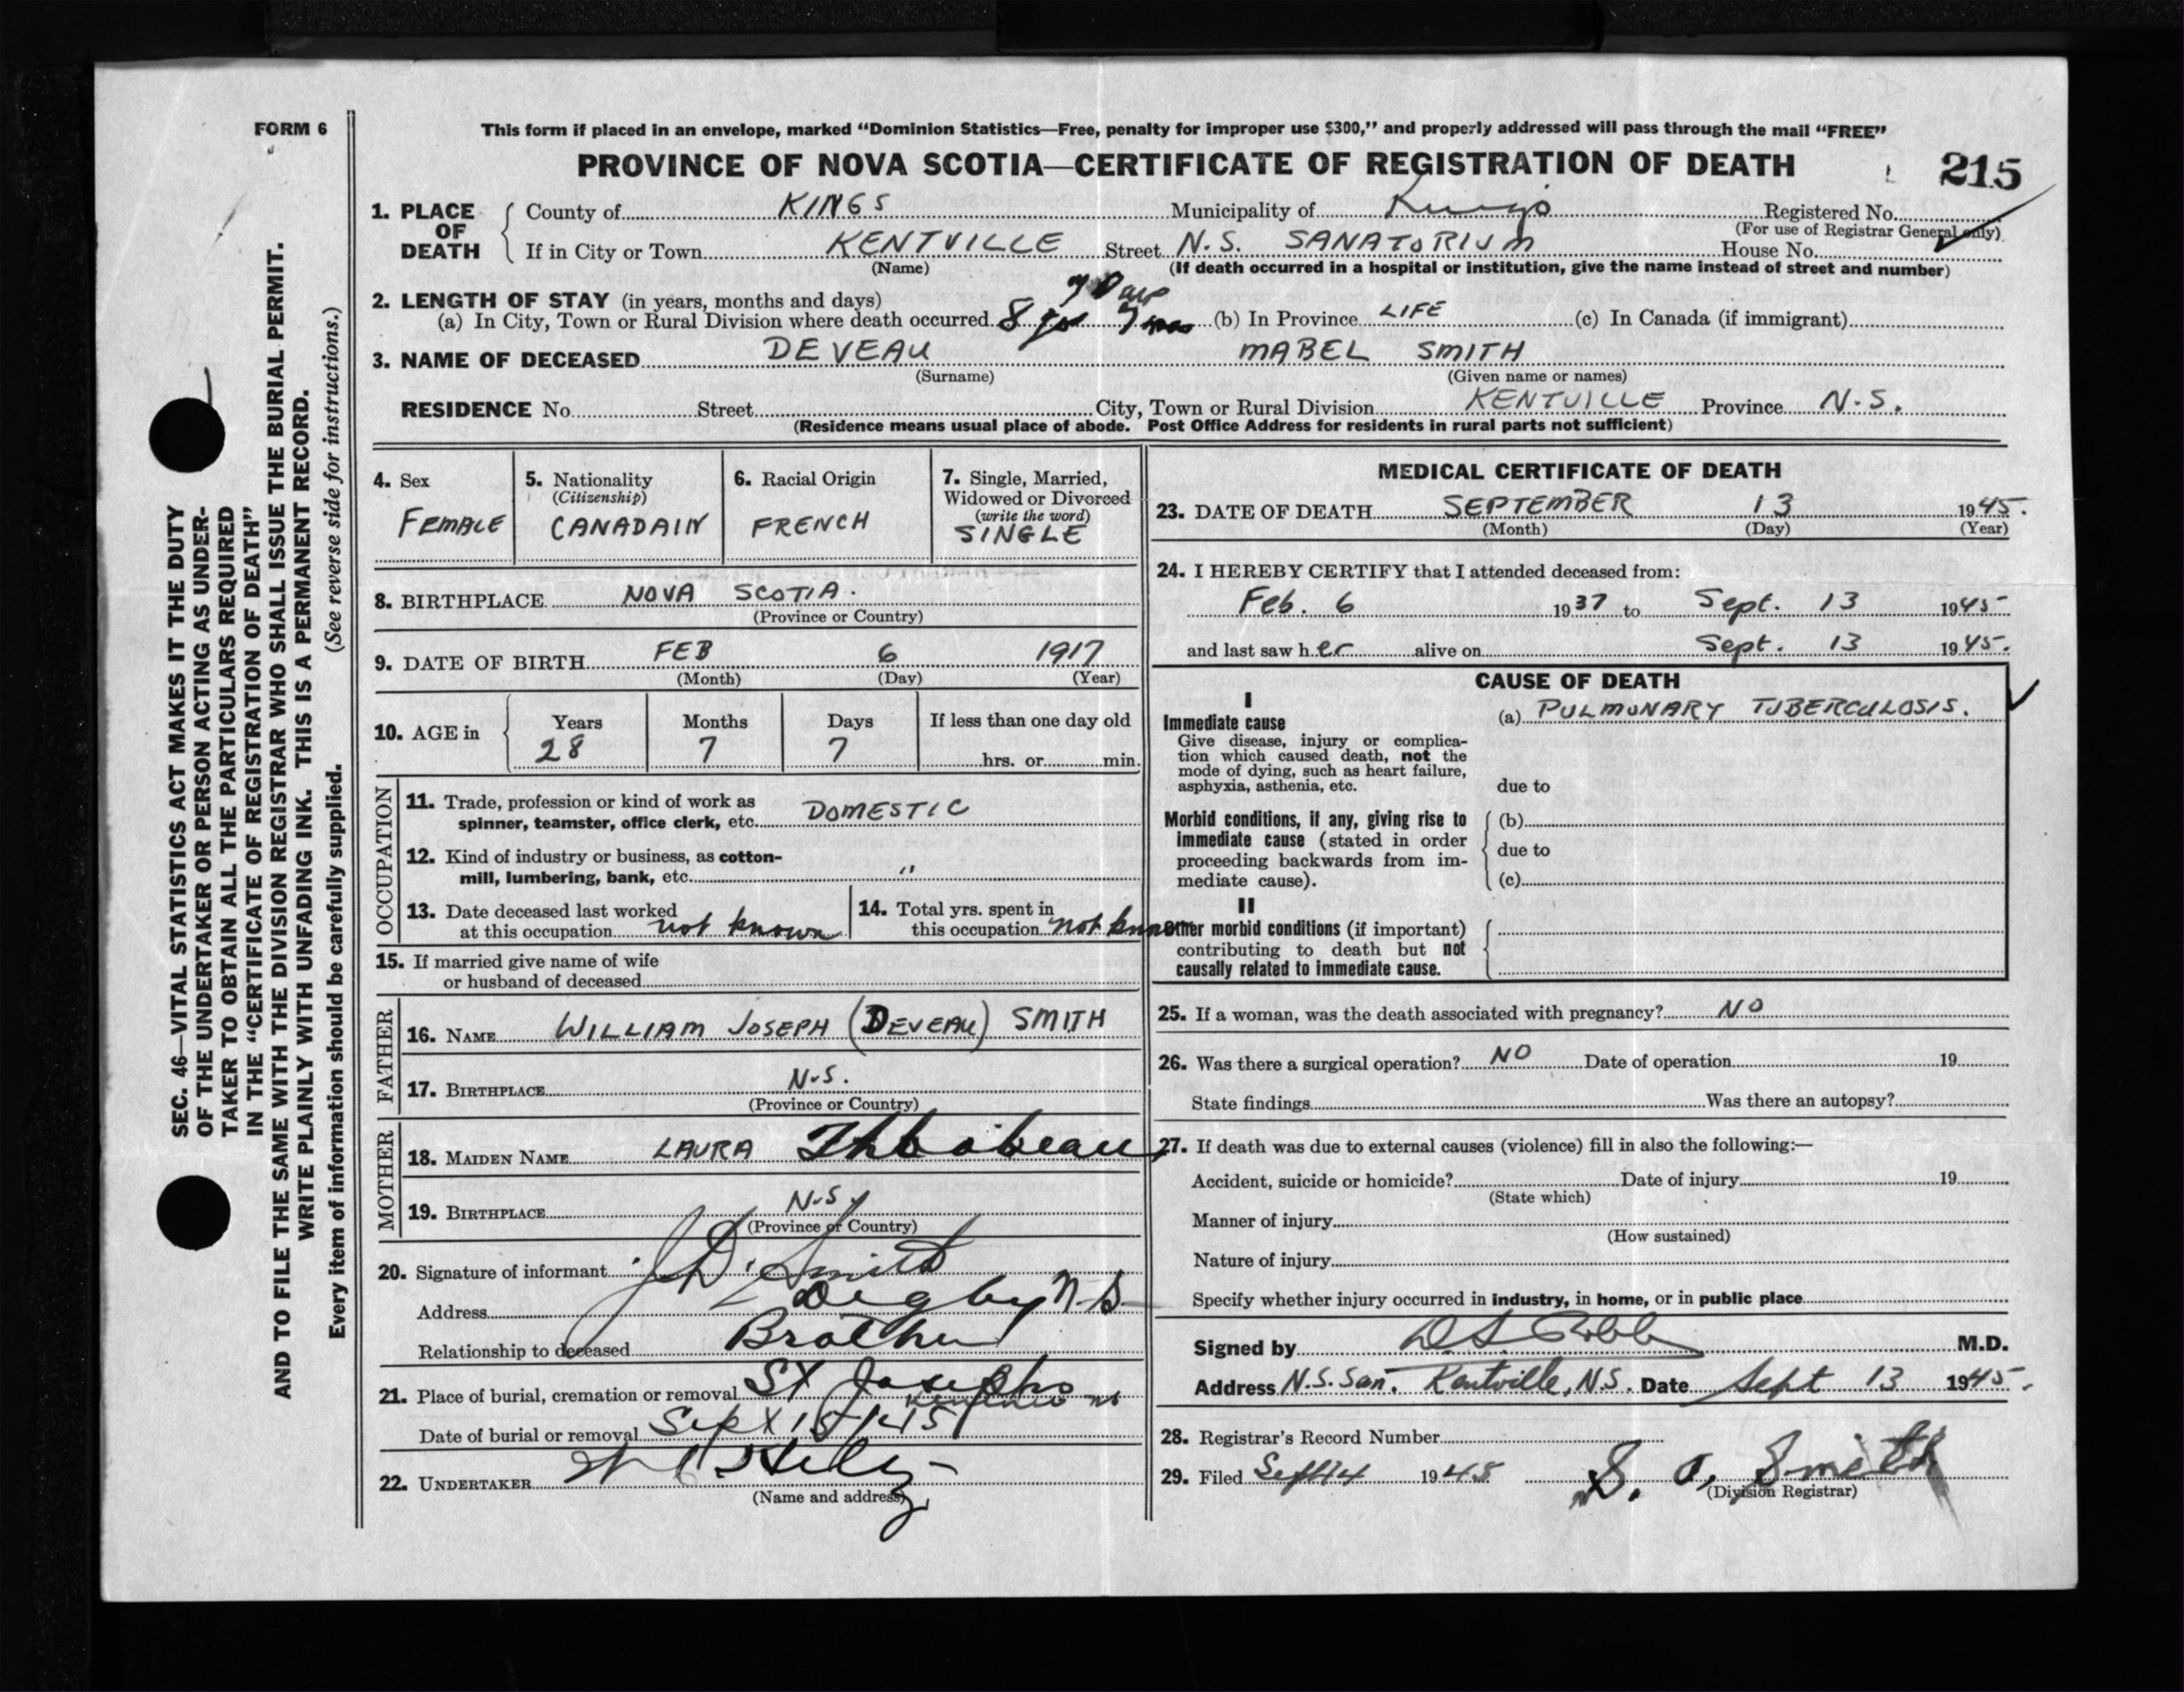 FORM 6
This form if placed in an envelope, marked "Dominion Statistics—Free, penalty for improper use $300," and properly addressed will pass through the mail "FREE"
PROVINCE OF NOVA SCOTIA—CERTIFICATE OF REGISTRATION OF DEATH
215
1. PLACE OF DEATH
County of KINGS Municipality of Kings Registered No.
(For use of Registrar General only)
If in City or Town KENTVILLE Street N.S. SANATORIUM House No.
(Name) (If death occurred in a hospital or institution, give the name instead of street and number)
2. LENGTH OF STAY (in years, months and days)
7 Days
(a) In City, Town or Rural Division where death occurred 8 yrs 7 mos (b) In Province LIFE (c) In Canada (if immigrant)
3. NAME OF DECEASED DEVEAU MABEL SMITH
(Surname) (Given name or names)
RESIDENCE No. Street City, Town or Rural Division KENTVILLE Province N.S.
(Residence means usual place of abode. Post Office Address for residents in rural parts not sufficient)
4. Sex
FEMALE
5. Nationality
(Citizenship)
CANADAIN
6. Racial Origin
FRENCH
7. Single, Married,
Widowed or Divorced
(write the word)
SINGLE
8. BIRTHPLACE NOVA SCOTIA.
(Province or Country)
9. DATE OF BIRTH FEB 6 1917
(Month) (Day) (Year)
10. AGE in
Years Months Days If less than one day old
28 7 7 hrs. or min.
OCCUPATION
11. Trade, profession or kind of work as
spinner, teamster, office clerk, etc. DOMESTIC
12. Kind of industry or business, as cotton-
mill, lumbering, bank, etc. "
13. Date deceased last worked
at this occupation not known
14. Total yrs. spent in
this occupation not known
15. If married give name of wife
or husband of deceased
FATHER
16. NAME WILLIAM JOSEPH (DEVEAU) SMITH
17. BIRTHPLACE N.S.
(Province or Country)
MOTHER
18. MAIDEN NAME LAURA
19. BIRTHPLACE N.S.
(Province or Country)
20. Signature of informant J. D. Smith
Address Digby N.S.
Relationship to deceased Brother
21. Place of burial, cremation or removal St Josephs
Date of burial or removal Sept 15/45
22. UNDERTAKER
(Name and address)
MEDICAL CERTIFICATE OF DEATH
23. DATE OF DEATH SEPTEMBER 13 1945.
(Month) (Day) (Year)
24. I HEREBY CERTIFY that I attended deceased from:
Feb. 6 1937 to Sept. 13 1945
and last saw her alive on Sept. 13 1945.
CAUSE OF DEATH
I
Immediate cause
Give disease, injury or complica-
tion which caused death, not the
mode of dying, such as heart failure,
asphyxia, asthenia, etc.
(a) PULMONARY TUBERCULOSIS.
due to
Morbid conditions, if any, giving rise to
immediate cause (stated in order
proceeding backwards from im-
mediate cause).
(b)
due to
(c)
II
Other morbid conditions (if important)
contributing to death but not
causally related to immediate cause.
25. If a woman, was the death associated with pregnancy? NO
26. Was there a surgical operation? NO Date of operation 19
State findings Was there an autopsy?
27. If death was due to external causes (violence) fill in also the following:—
Accident, suicide or homicide? Date of injury 19
(State which)
Manner of injury
(How sustained)
Nature of injury
Specify whether injury occurred in industry, in home, or in public place
Signed by D.S. Robb M.D.
Address N.S. San. Kentville, N.S. Date Sept 13 1945.
28. Registrar's Record Number
29. Filed Sept 14 1945 S. O. Smith
(Division Registrar)
SEC. 46—VITAL STATISTICS ACT MAKES IT THE DUTY
OF THE UNDERTAKER OR PERSON ACTING AS UNDER-
TAKER TO OBTAIN ALL THE PARTICULARS REQUIRED
IN THE "CERTIFICATE OF REGISTRATION OF DEATH"
AND TO FILE THE SAME WITH THE DIVISION REGISTRAR WHO SHALL ISSUE THE BURIAL PERMIT.
WRITE PLAINLY WITH UNFADING INK. THIS IS A PERMANENT RECORD.
Every item of information should be carefully supplied. (See reverse side for instructions.)